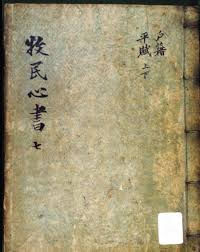 戶籍
平賦 上下
牧民心書 七